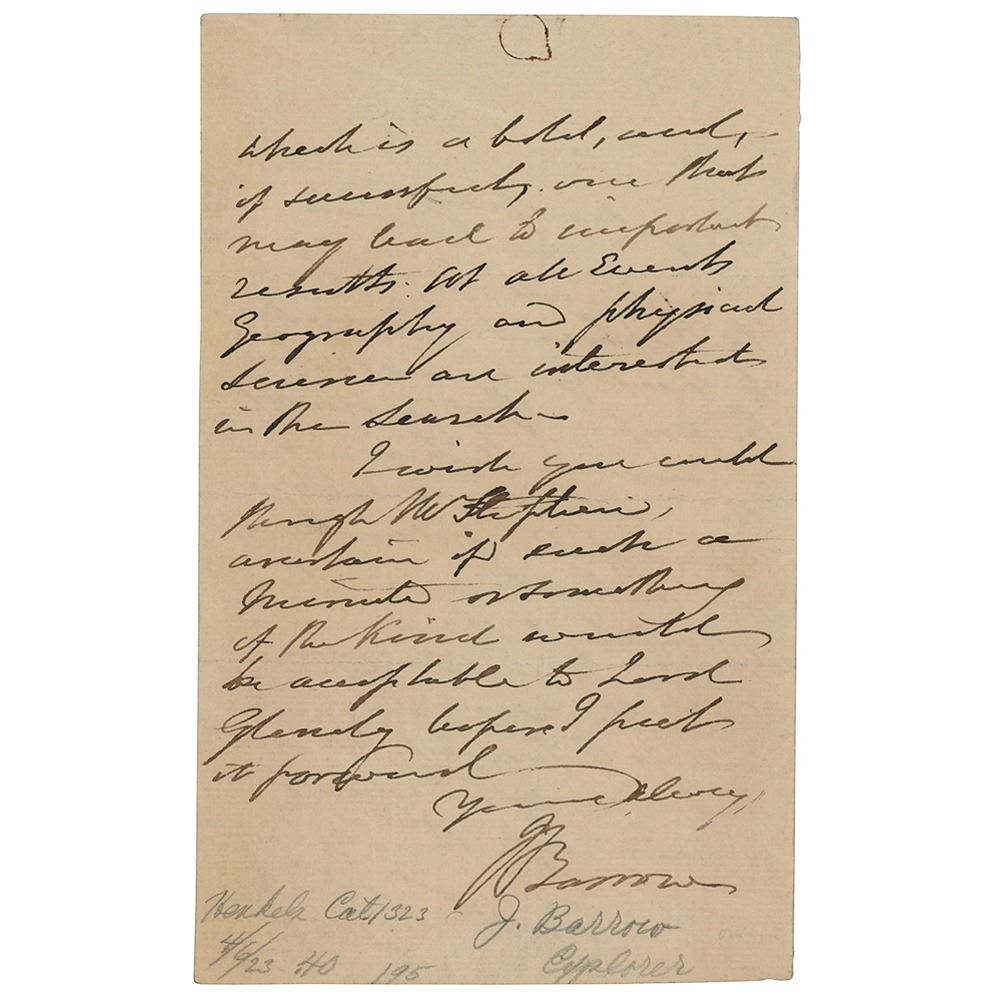 which is a bold, and,
if successful, one that
may lead to important
results. At all Events
Geography and physical
Science are interested
in the Search –
I wish you would
through Mr Stephen,
ascertain if such a
Minute or something
of the Kind would
be acceptable to Lord
Glenelg before I put
it forward
Yours
J Barrow
Henkels Cat 1323
J. Barrow
4/6/23 .40 195
Explorer